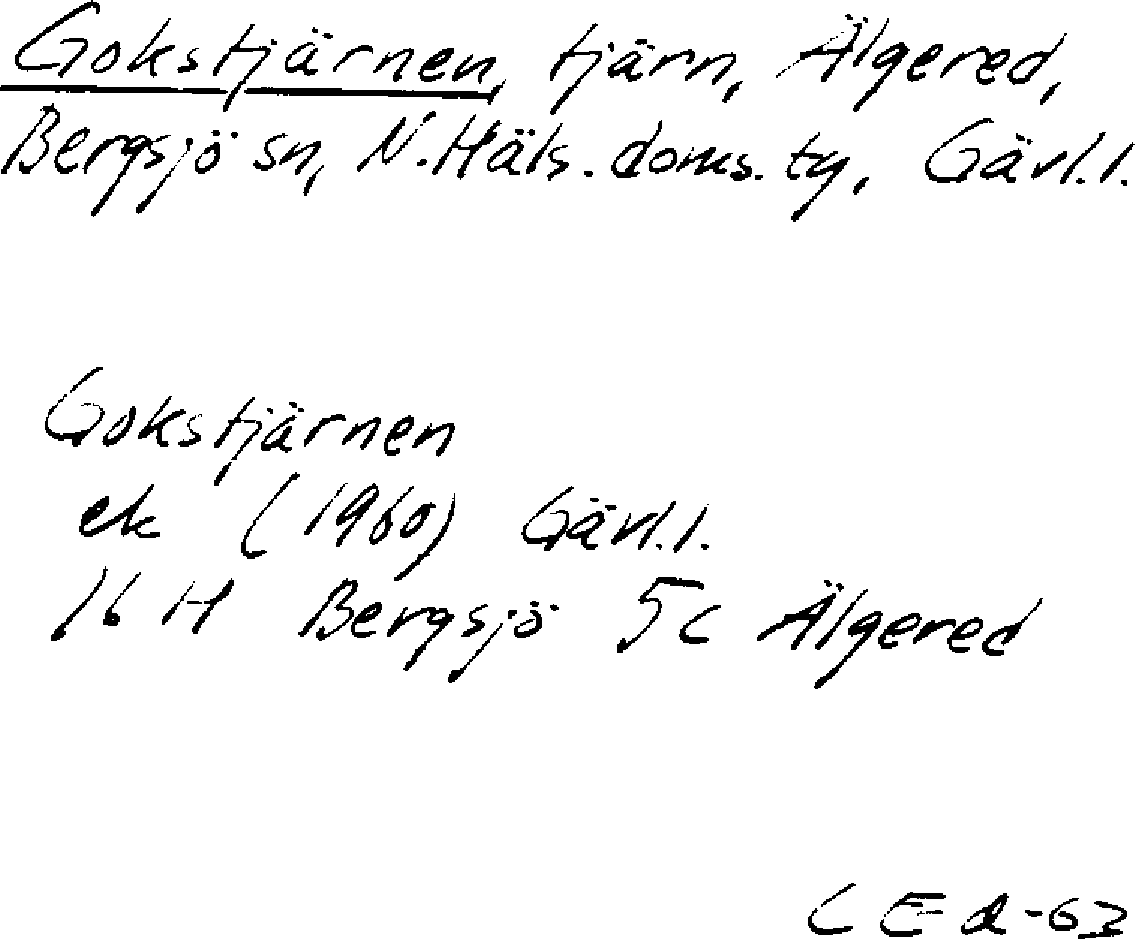 Gokstjärnen, tjärn, Älgered,
Bergsjö sn, N. Häls. doms. tg, Gävl. l.
Gokstjärnen
ek (1960) Gävl. l.
16 H Bergsjö 5c Älgered